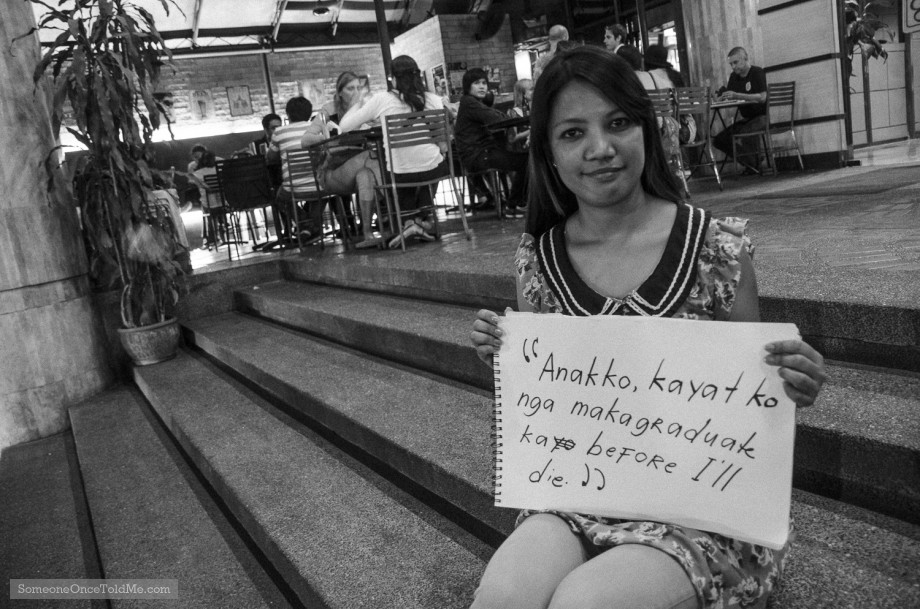 “Anakko, kayat ko
nga makagraduate
ka before I'll
die.”
SomeoneOnceToldMe.com